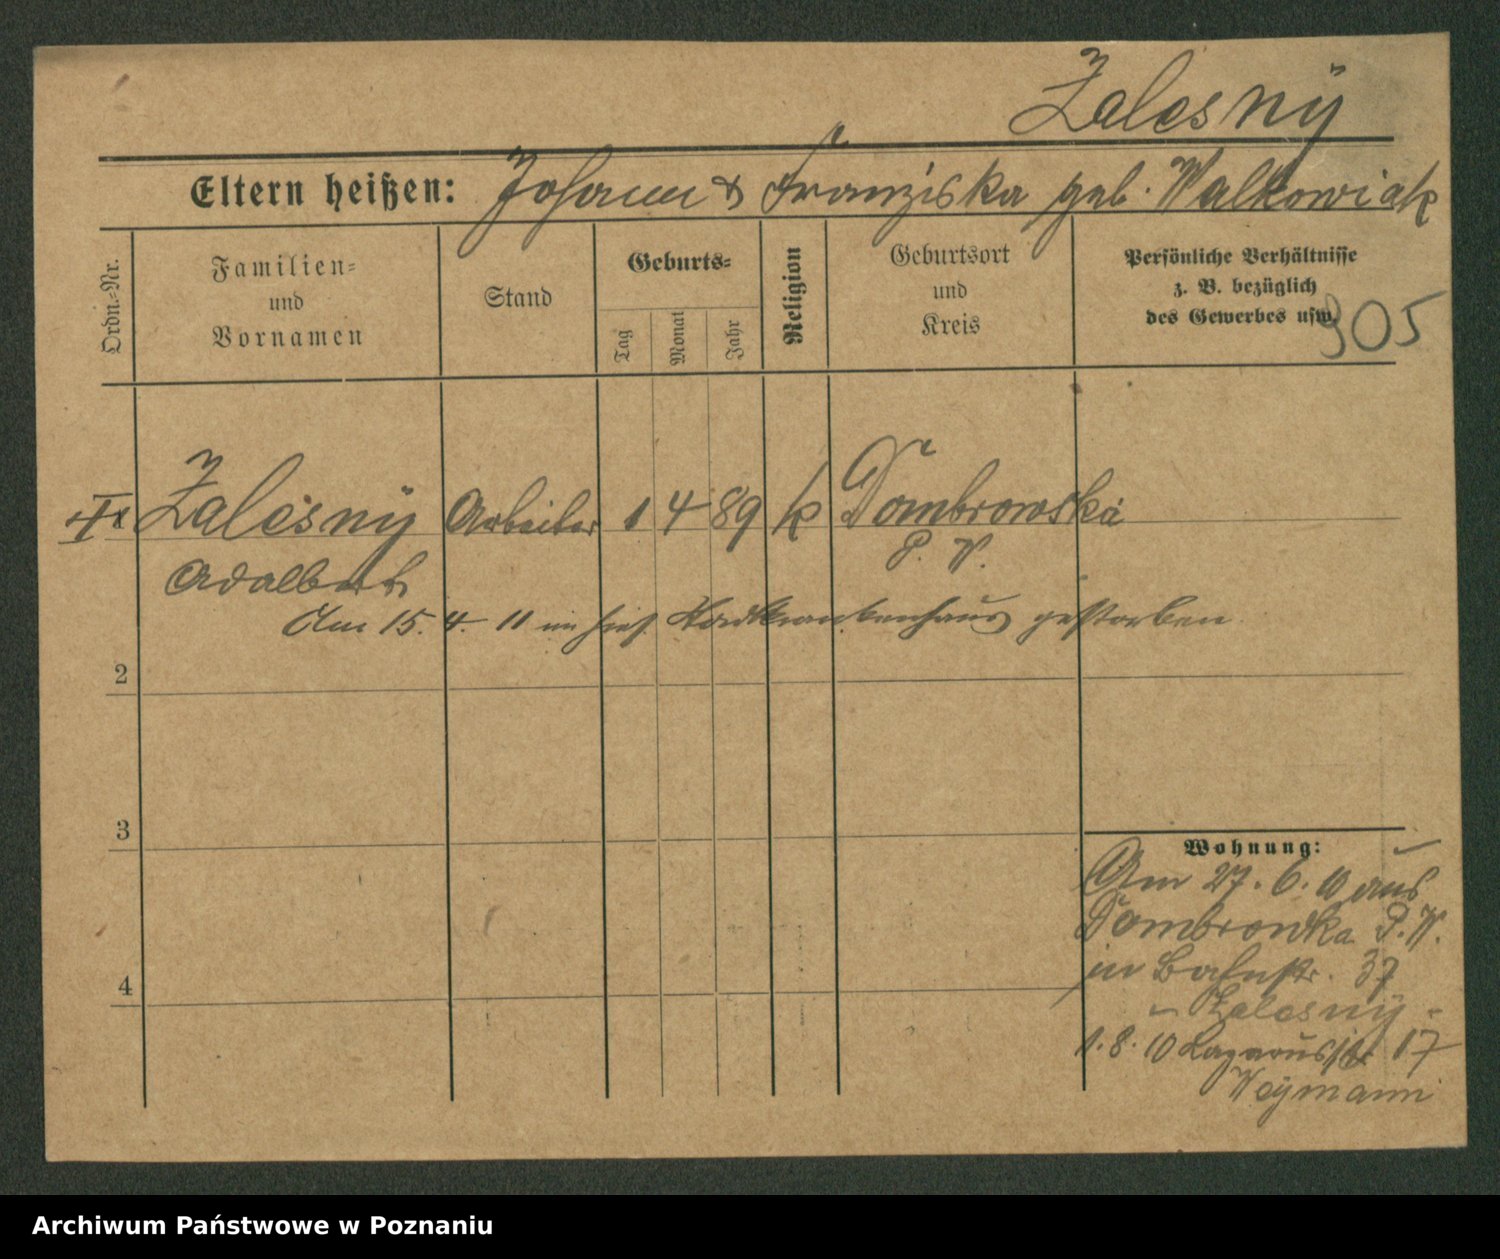 Zalesnÿ
Eltern heißen: Johann & Franziska geb. Walkowiak
Ordn.-Nr.
Familien-
und
Vornamen
Stand
Geburts-
Tag
Monat
Jahr
Religion
Geburtsort
und
Kreis
Persönliche Verhältnisse
z. B. bezüglich
des Gewerbes usw.
905
Zalesnÿ Arbeiter 1 4 89 k Dombrowska
Adalbert P. W.
Am 15. 4. 11 im hies. Stadtkrankenhaus gestorben
2
3
4
Wohnung:
Am 27. 6. 10 aus
Dombrowka P. W.
in Bahnstr. 37
– Zalesnÿ –
1. 8. 10 Lazarusstr 17
Weÿmann
Archiwum Państwowe w Poznaniu